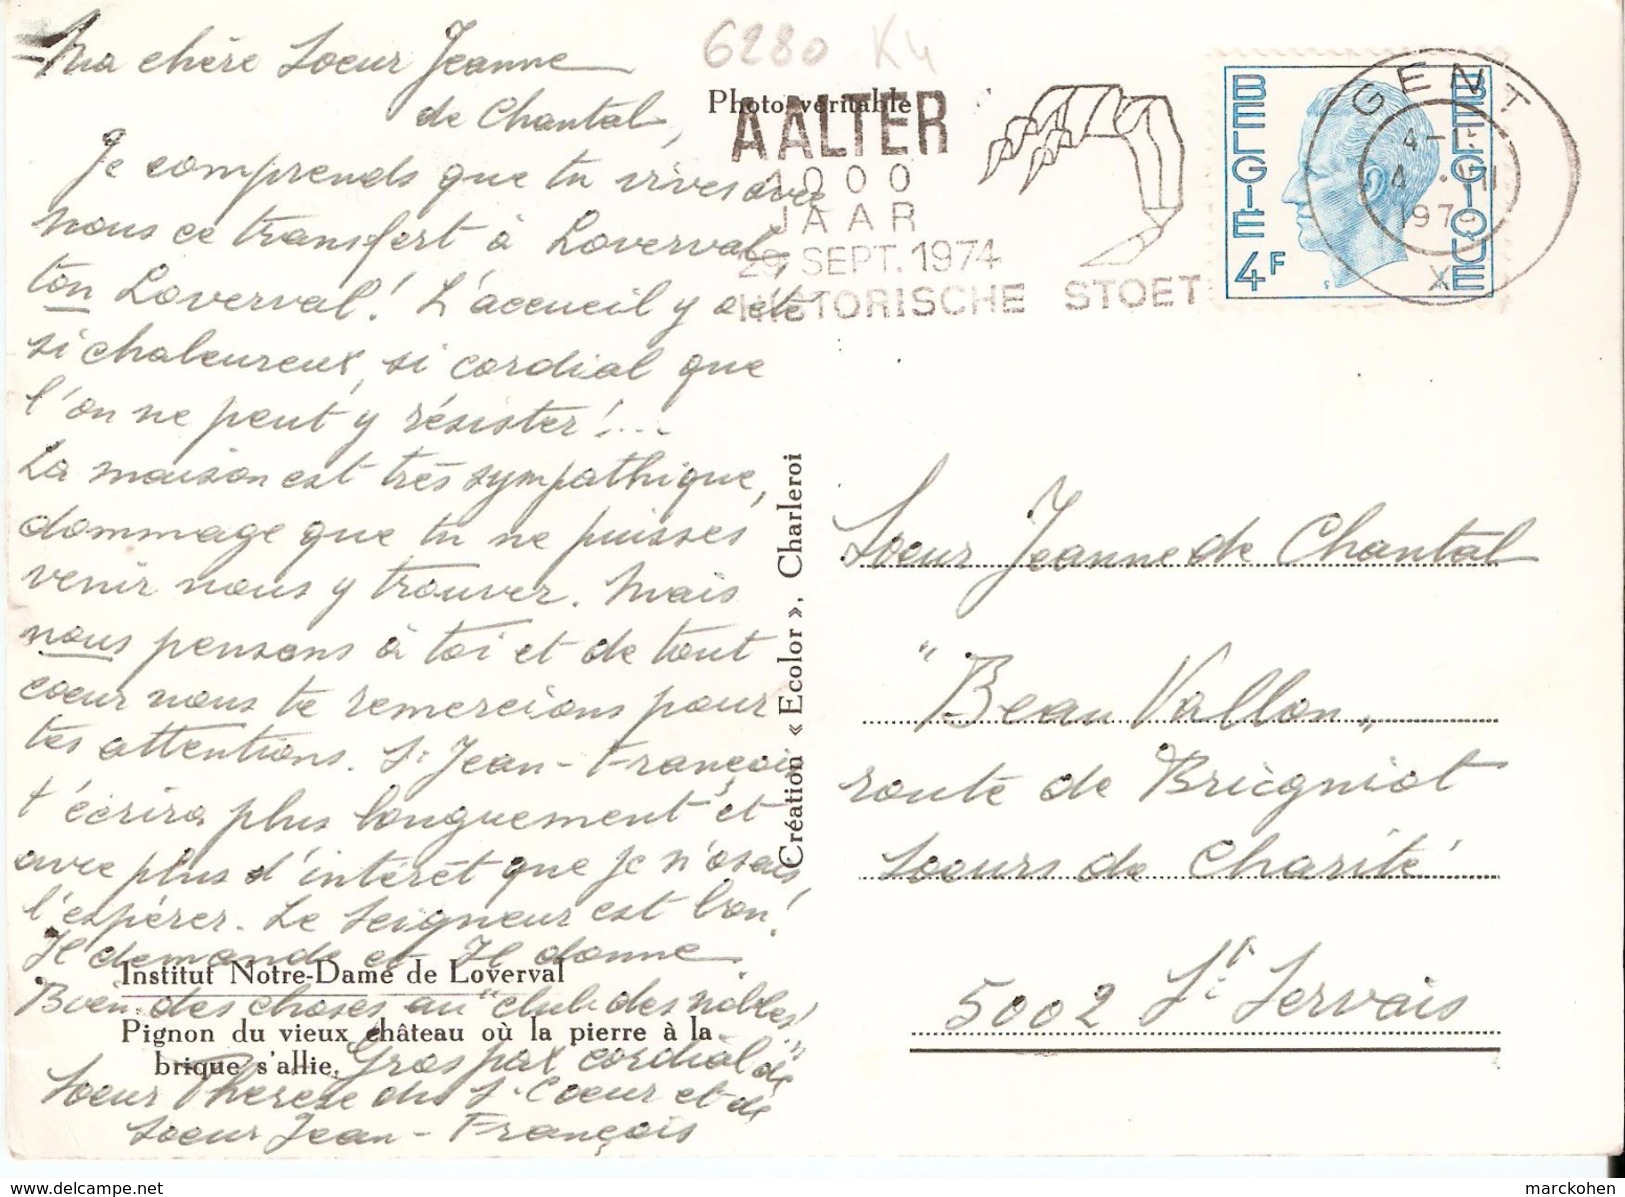 6280 K4
Ma chère Soeur Jeanne
de Chantal,
Je comprends que tu vives avec
nous ce transfert à Loverval,
ton Loverval! L'accueil y a été
si chaleureux, si cordial que
l'on ne peut y résister!...
La maison est très sympathique,
dommage que tu ne puisses
venir nous y trouver. Mais
nous pensons à toi et de tout
coeur nous te remercions pour
tes attentions. Sr Jean-François
t'écrira plus longuement et
avec plus d'intérêt que je n'osais
l'espérer. Le Seigneur est bon!
Il demande et Il donne
Bien des choses au "club des nobles"
Gros pax cordial de
Soeur Thérèse du S. Coeur et de
Soeur Jean-François
Institut Notre-Dame de Loverval
Pignon du vieux château où la pierre à la
brique s'allie.
Photo véritable
Création « Ecolor », Charleroi
AALTER
1000
JAAR
29 SEPT. 1974
HISTORISCHE STOET
BELGIË
4F
BELGIQUE
GENT
197
X
Soeur Jeanne de Chantal
"Beau Vallon"
route de Bricgniot
Soeurs de Charité
5002 St Servais
delcampe.net
marckohen